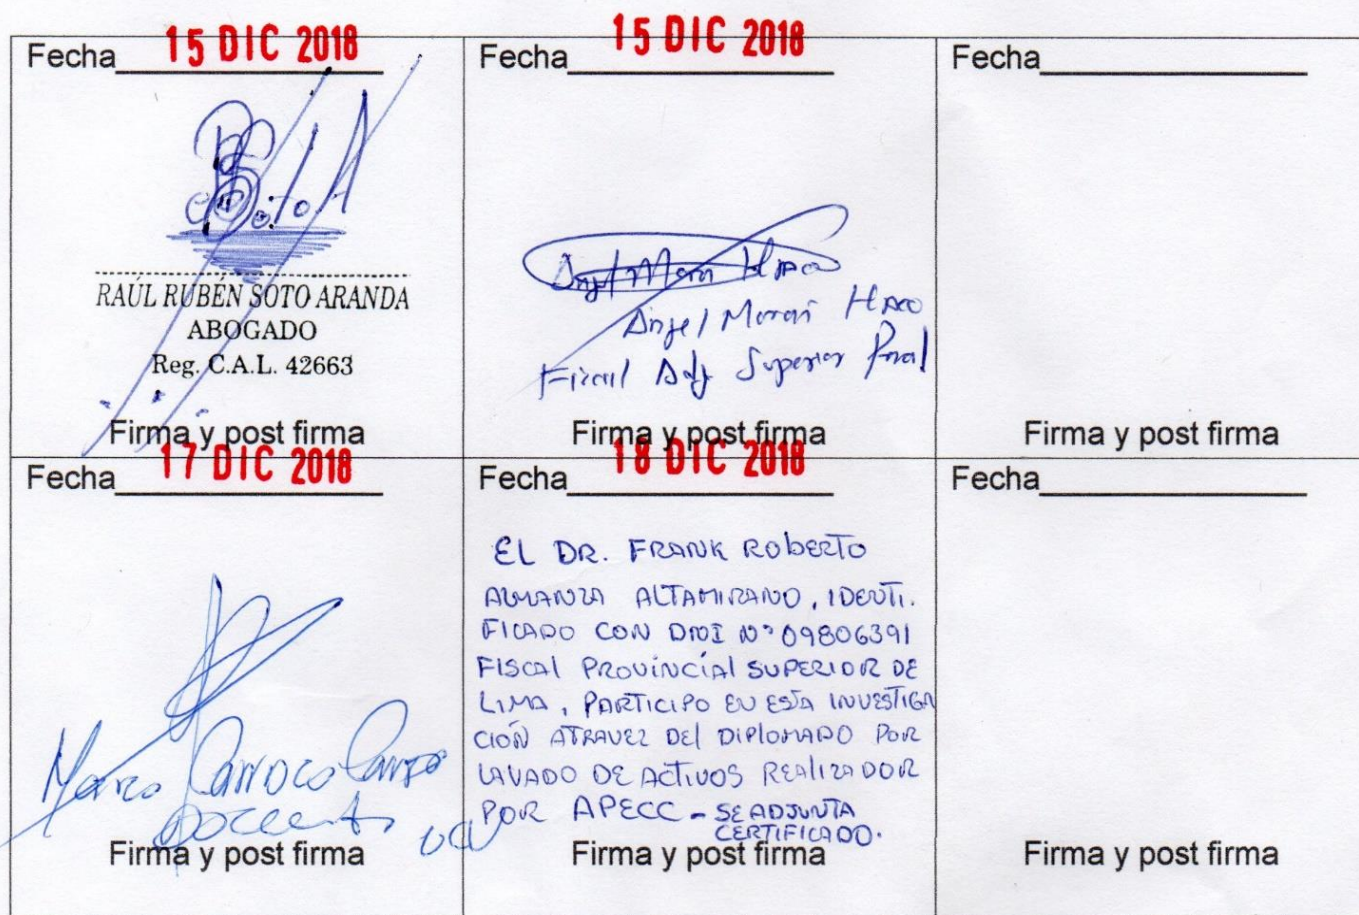 Fecha 15 DIC 2018
RAÚL RUBÉN SOTO ARANDA
ABOGADO
Reg. C.A.L. 42663
Firma y post firma
Fecha 15 DIC 2018
Angel Moran Haco
Fiscal Adj Superior Penal
Firma y post firma
Fecha
Firma y post firma
Fecha 17 DIC 2018
Marco
Docente UCV
Firma y post firma
Fecha 18 DIC 2018
EL DR. FRANK ROBERTO
ALMANZA ALTAMIRANO, IDENTI.
FICADO CON DNI N° 09806391
FISCAL PROVINCIAL SUPERIOR DE
LIMA, PARTICIPO EN ESTA INVESTIGA
CIÓN ATRAVEZ DEL DIPLOMADO POR
LAVADO DE ACTIVOS REALIZADOR
POR APECC - SE ADJUNTA
CERTIFICADO.
Firma y post firma
Fecha
Firma y post firma